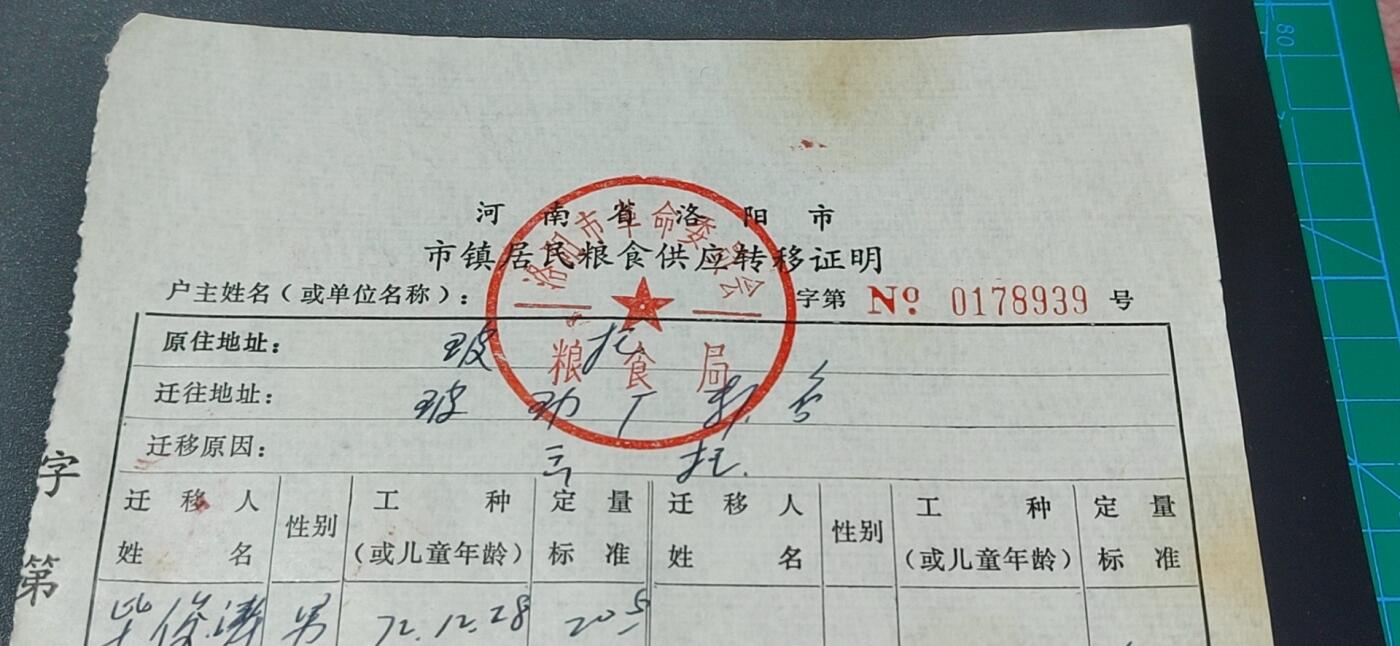 河南省洛阳市
市镇居民粮食供应转移证明
户主姓名（或单位名称）： 字第 No. 0178939 号
洛阳市革命委员会
粮食局
原住地址： 玻
迁往地址： 玻 厂
迁移原因：
字
第
迁移人姓名 性别 工种（或儿童年龄） 定量标准 迁移人姓名 性别 工种（或儿童年龄） 定量标准
毕俊涛 男 72.12.28 20.5
60